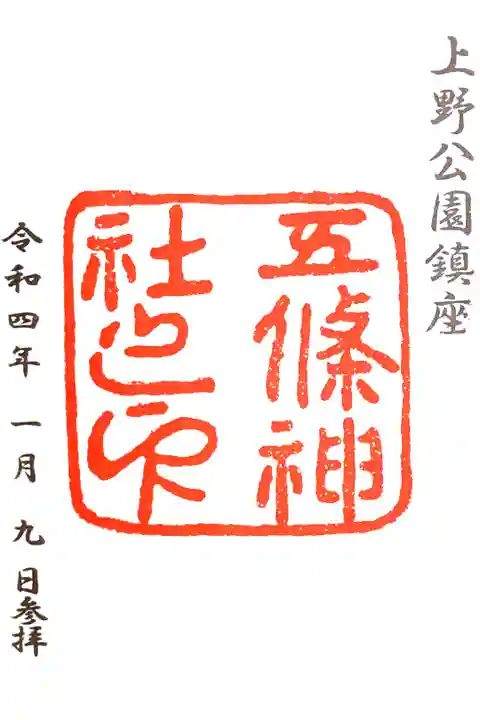 上野公園鎮座
五條神
社之印
令和四年 一月 九日参拝